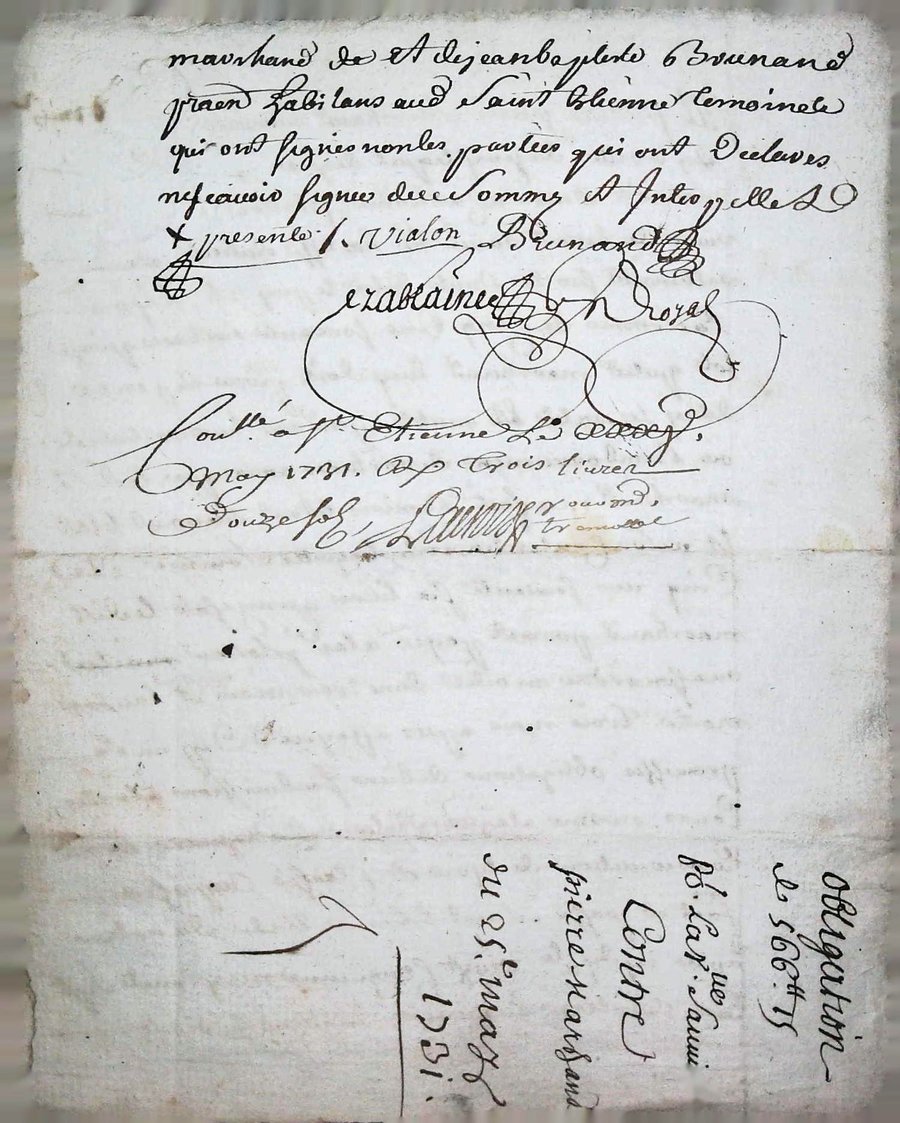 marchand de et de jean baptiste Brunand
praën habitans aud Saint Etienne temoins
qui ont signes non les parties qui ont declares
ne scavoir signer de ce sommes et Interpelles
x presente /. Vialon Brunand
ezablaine Royal
Conllé a St Etienne Le
May 1731. Rx Trois livres
Douze sols
obligation
de 566tt 15
po. La ve. Sauvi
Contre
pierre marsand
du 25e may
1731.